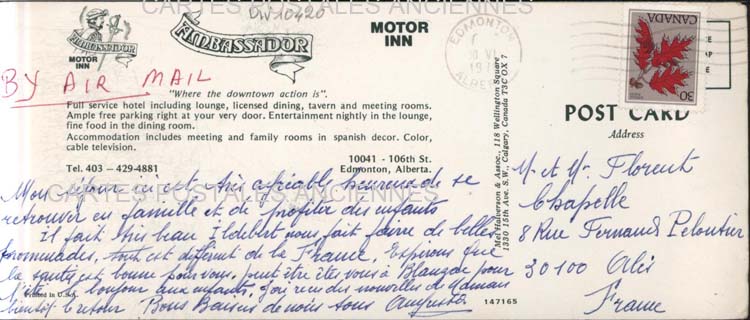 CARTES POSTALES ANCIENNES
AMBASSADOR
MOTOR INN
AMBASSADOR
MOTOR INN
BY AIR MAIL
"Where the downtown action is".
Full service hotel including lounge, licensed dining, tavern and meeting rooms.
Ample free parking right at your very door. Entertainment nightly in the lounge,
fine food in the dining room.
Accommodation includes meeting and family rooms in spanish decor. Color,
cable television.
Tel. 403 - 429-4881
10041 - 106th St.
Edmonton, Alberta.
CARTES POSTALES ANCIENNES
Mon séjour ici est très agréable heureuse de se
retrouver en famille et de profiter des enfants
il fait très beau Ildebert nous fait faire de belles
promenades, tout est différent de la France. Espérons que
la santé est bonne pour vous, peut être êtes vous à Blauzac pour
l'été bonjour aux enfants, j'ai reçu des nouvelles de
bientôt le retour Bons Baisers de nous tous Augusta
Printed in U.S.A.
147165
Mel Halverson & Assoc., 118 Wellington Square
1330 15th Ave. S.W., Calgary, Canada T3C OX 7
EDMONTON
CANADA
30
POST CARD
Address
M. et Me Florent
Chapelle
8 Rue Fernand Peloutier
30100 Alès
France